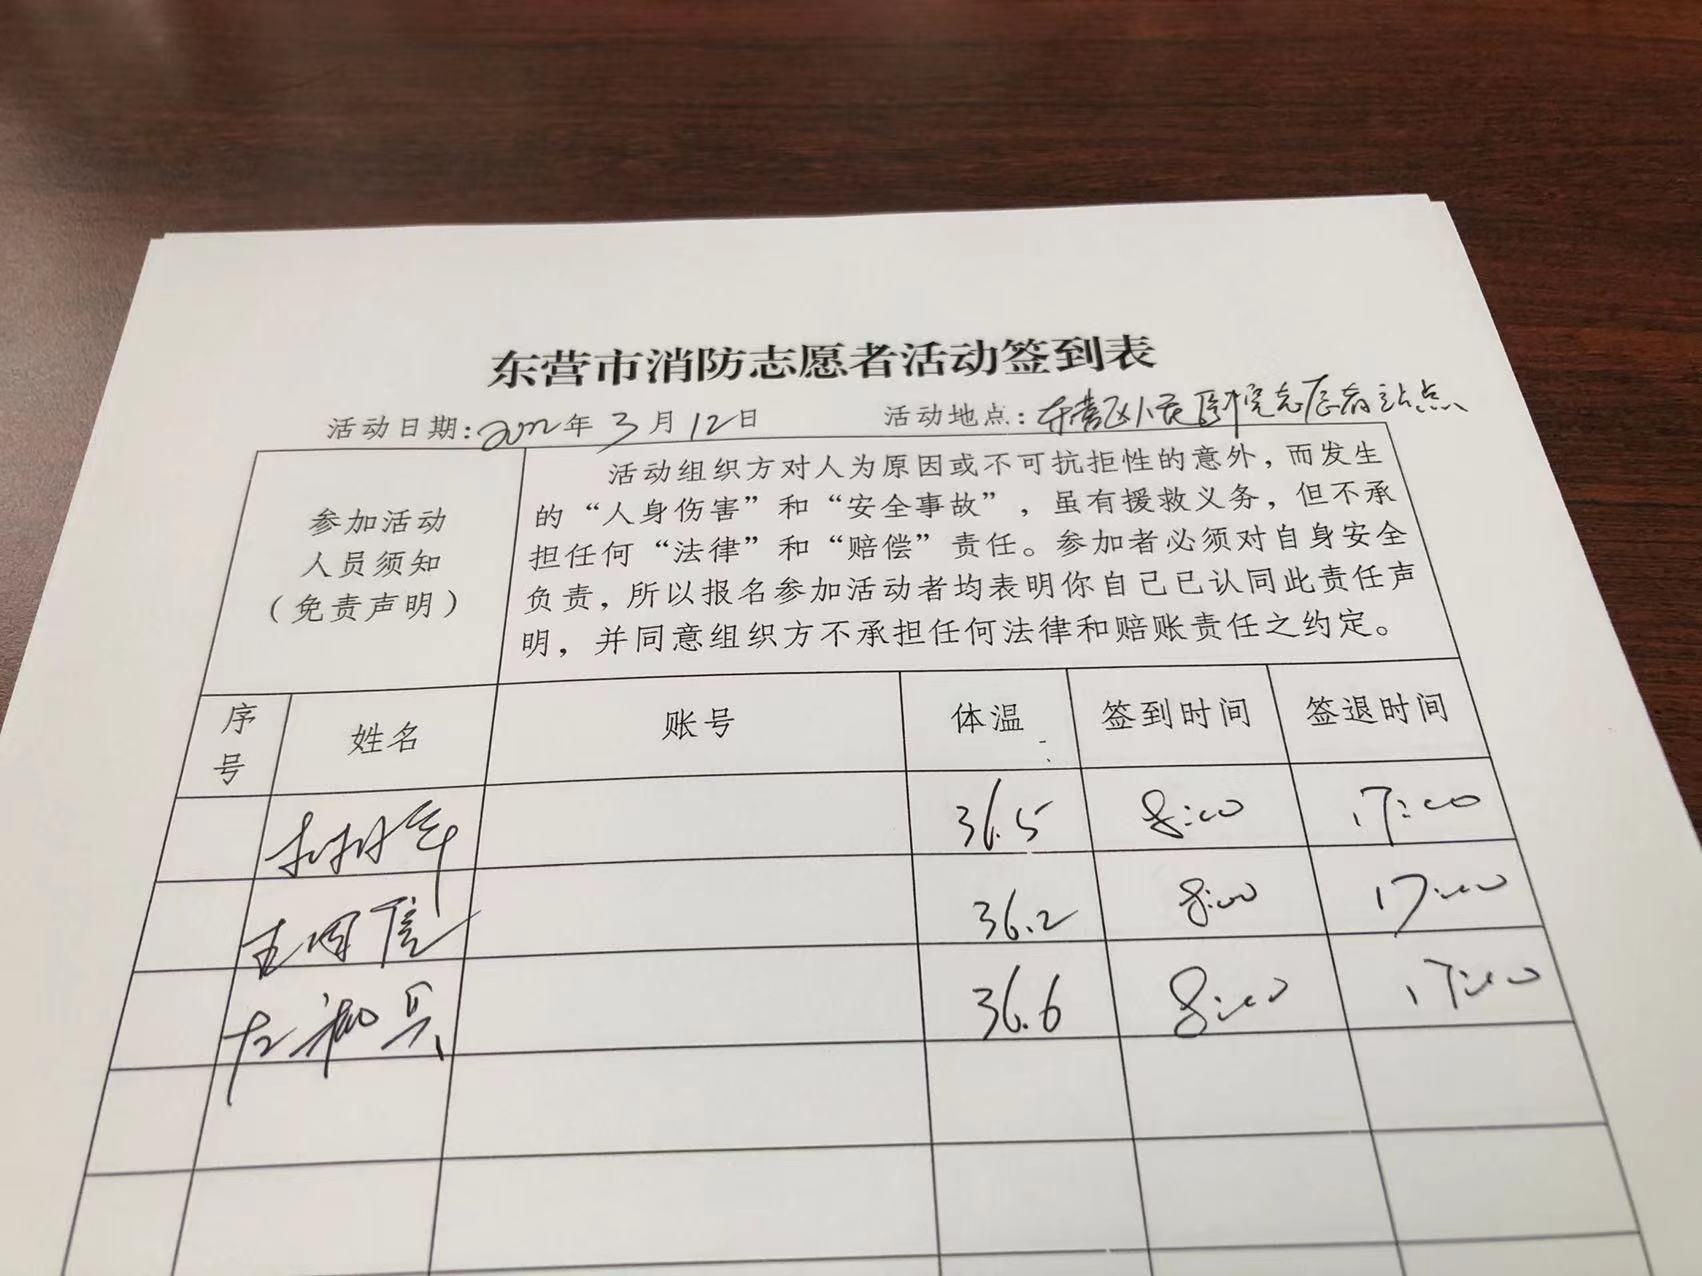 东营市消防志愿者活动签到表
活动日期:2022年3月12日 活动地点:东营区人民医院志愿者站点
参加活动
人员须知
(免责声明)
活动组织方对人为原因或不可抗拒性的意外,而发生
的“人身伤害”和“安全事故”,虽有援救义务,但不承
担任何“法律”和“赔偿”责任。参加者必须对自身安全
负责,所以报名参加活动者均表明你自己已认同此责任声
明,并同意组织方不承担任何法律和赔账责任之约定。
序号 姓名 账号 体温 签到时间 签退时间
36.5 8:00 17:00
36.2 8:00 17:00
36.6 8:00 17:00